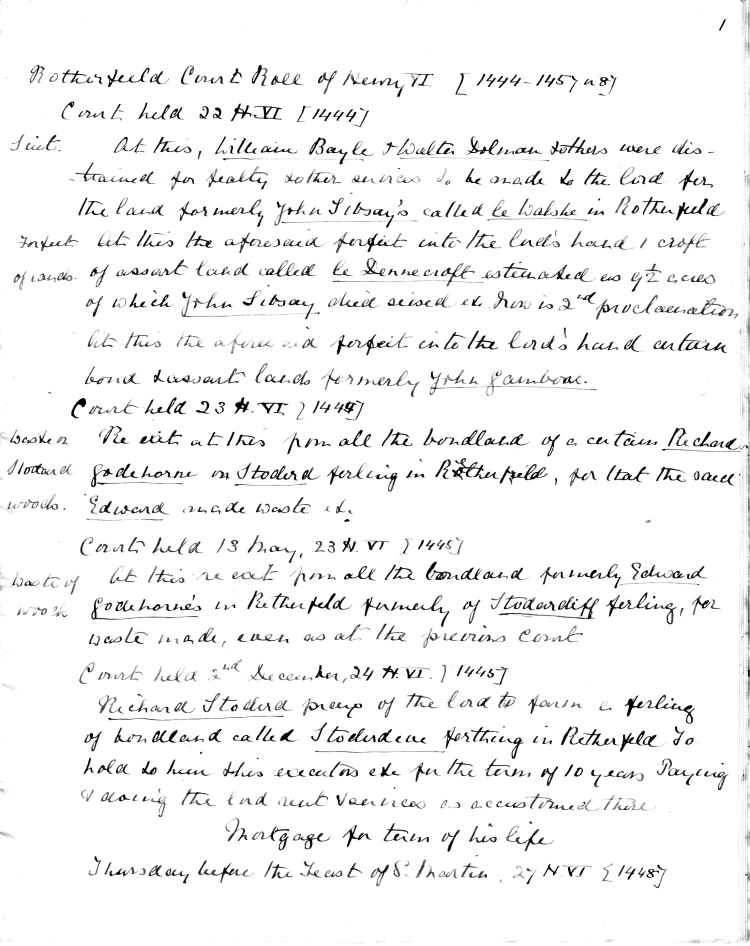 1
Rotherfield Court Roll of Henry VI [1444-1457 or 8]
Court held 22 H. VI [1444]
Suit. At this, William Bayle & Walter Dolman & others were dis-
-trained for fealty & other services to be made to the lord for
the land formerly John Sibsay's called le Walshe in Rotherfeld
Forfeit At this the aforesaid forfeit into the lord's hand 1 croft
of lands. of assart land called le Dennecroft estimated as 9½ acres
of which John Sibsay died seised etc Now is 2nd proclamation
At this the aforesaid forfeit into the lord's hand certain
bond & assart lands formerly John Gamboer.
Court held 23 H. VI [1444]
Waste on Re exit at this from all the bondland of a certain Richard
Stodard Godehorne on Stoderd ferling in Retherfeld, for that the said
woods. Edward made waste etc.
Court held 13 May, 23 H. VI [1445]
Waste of At this re exit from all the bondland formerly Edward
woods Godehorne's in Retherfeld formerly of Stodardiff ferling, for
waste made, even as at the previous Court
Court held 2nd December, 24 H. VI. [1445]
Richard Stoderd prays of the lord to farm a ferling
of bondland called Stoderdene ferthing in Retherfeld To
hold to him & his executors etc for the term of 10 years Paying
& doing the lord rent & services as accustomed there
Mortgage for term of his life
Thursday before the Feast of S. Martin, 27 H. VI [1448]